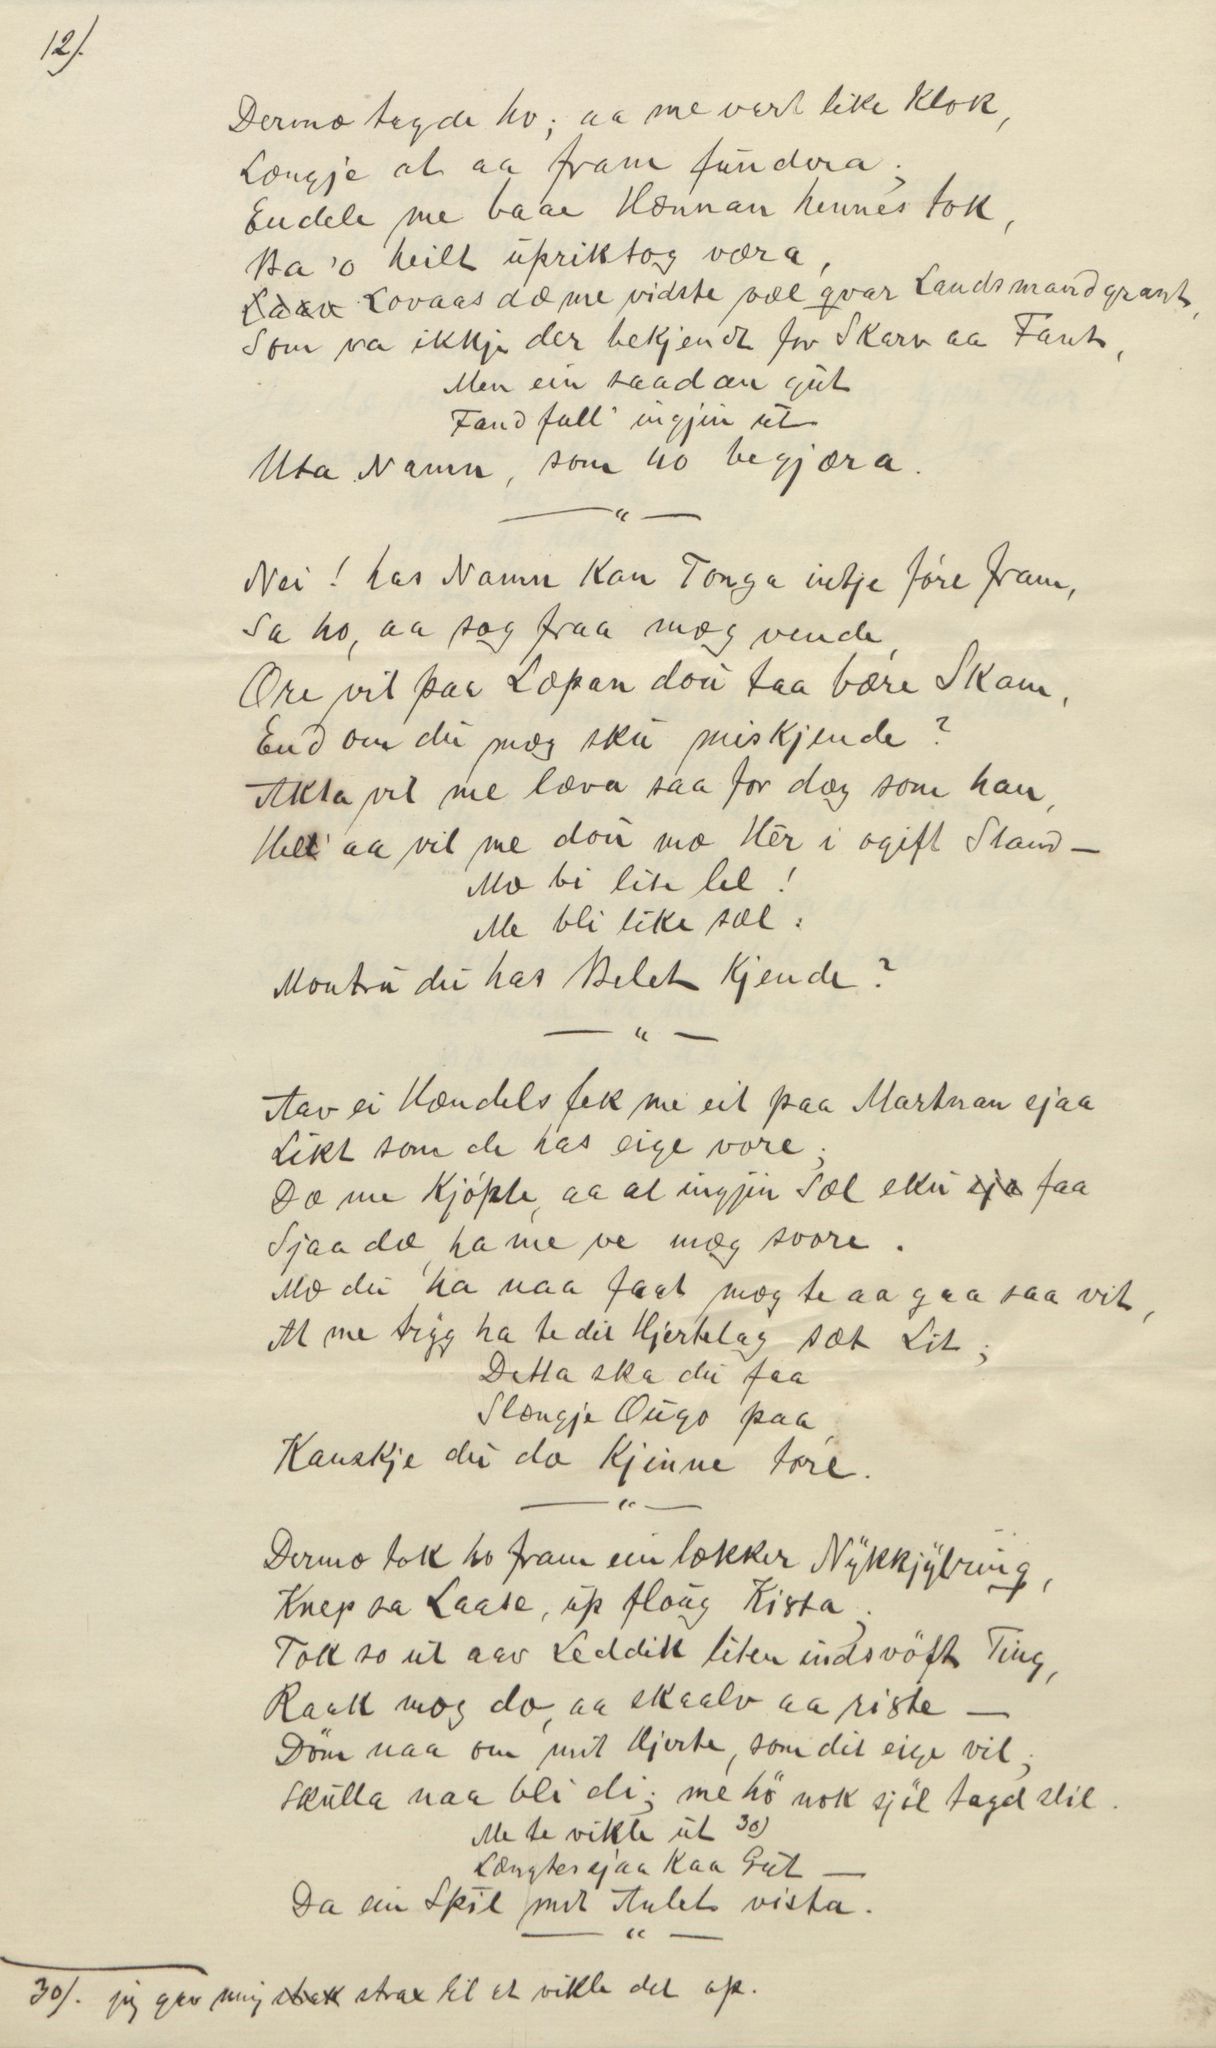 12/.
Dermæ tagde ho; aa me vart like klok,
Længje at aa fram fundera;
Endele me baae Hænnan hennes tok,
Ba 'o heilt upriktog væra,
Lovaas dæ me vidste væl qvar Landsmand grant,
Som va ikkje der bekjendt for Skarv aa Fant,
Men ein saadan gut
Fand fall' ingjin ut
Uta Namn, som ho begjæra.
— " —
Nei! has Namn kan Tonga intje före fram,
Sa ho, aa sog fraa mæg vende,
Øre vil paa Læpan doü taa bære Skam,
End om du mæg sku miskjende?
Akta vil me læva saa for dæg som han,
Hell' aa vil me doü mæ Hér i ogift Stand —
Mæ bi lite lel!
Me bli like sæl:
Montru du has Belet kjende?
— " —
Aav ei Hændels fek me eit paa Martnan sjaa
Likt som de has eige vore;
Dæ me kjöpte, aa at ingjin Sæl sku sja faa
Sjaa dæ, ha me ve mæg svore.
Mæ du ha naa faat mæg te aa gaa saa vit,
At me trygg ha te dit Hjertelag sæt Lit;
Detta ska du faa
Slængje Ougo paa,
Kanskje du da kjinne tore.
— " —
Dermæ tok ho fram ein lækker Nykkjylring,
Knep sa Laase, up floug Kista;
Tok so ut aav Leddik liten indsvöft Ting,
Raak mæg dæ, aa skaalv aa riste —
Döm naa om mit Hjerte, som dit eige vil;
Skulla naa bli di; me hö nok sjöl tagd stil.
Me te vikle ut 30)
Længtes sjaa kaa Gut —
Da ein Spil mit Anlet vista.
— " —
30/. jeg gav mig strax til at vikle det op.